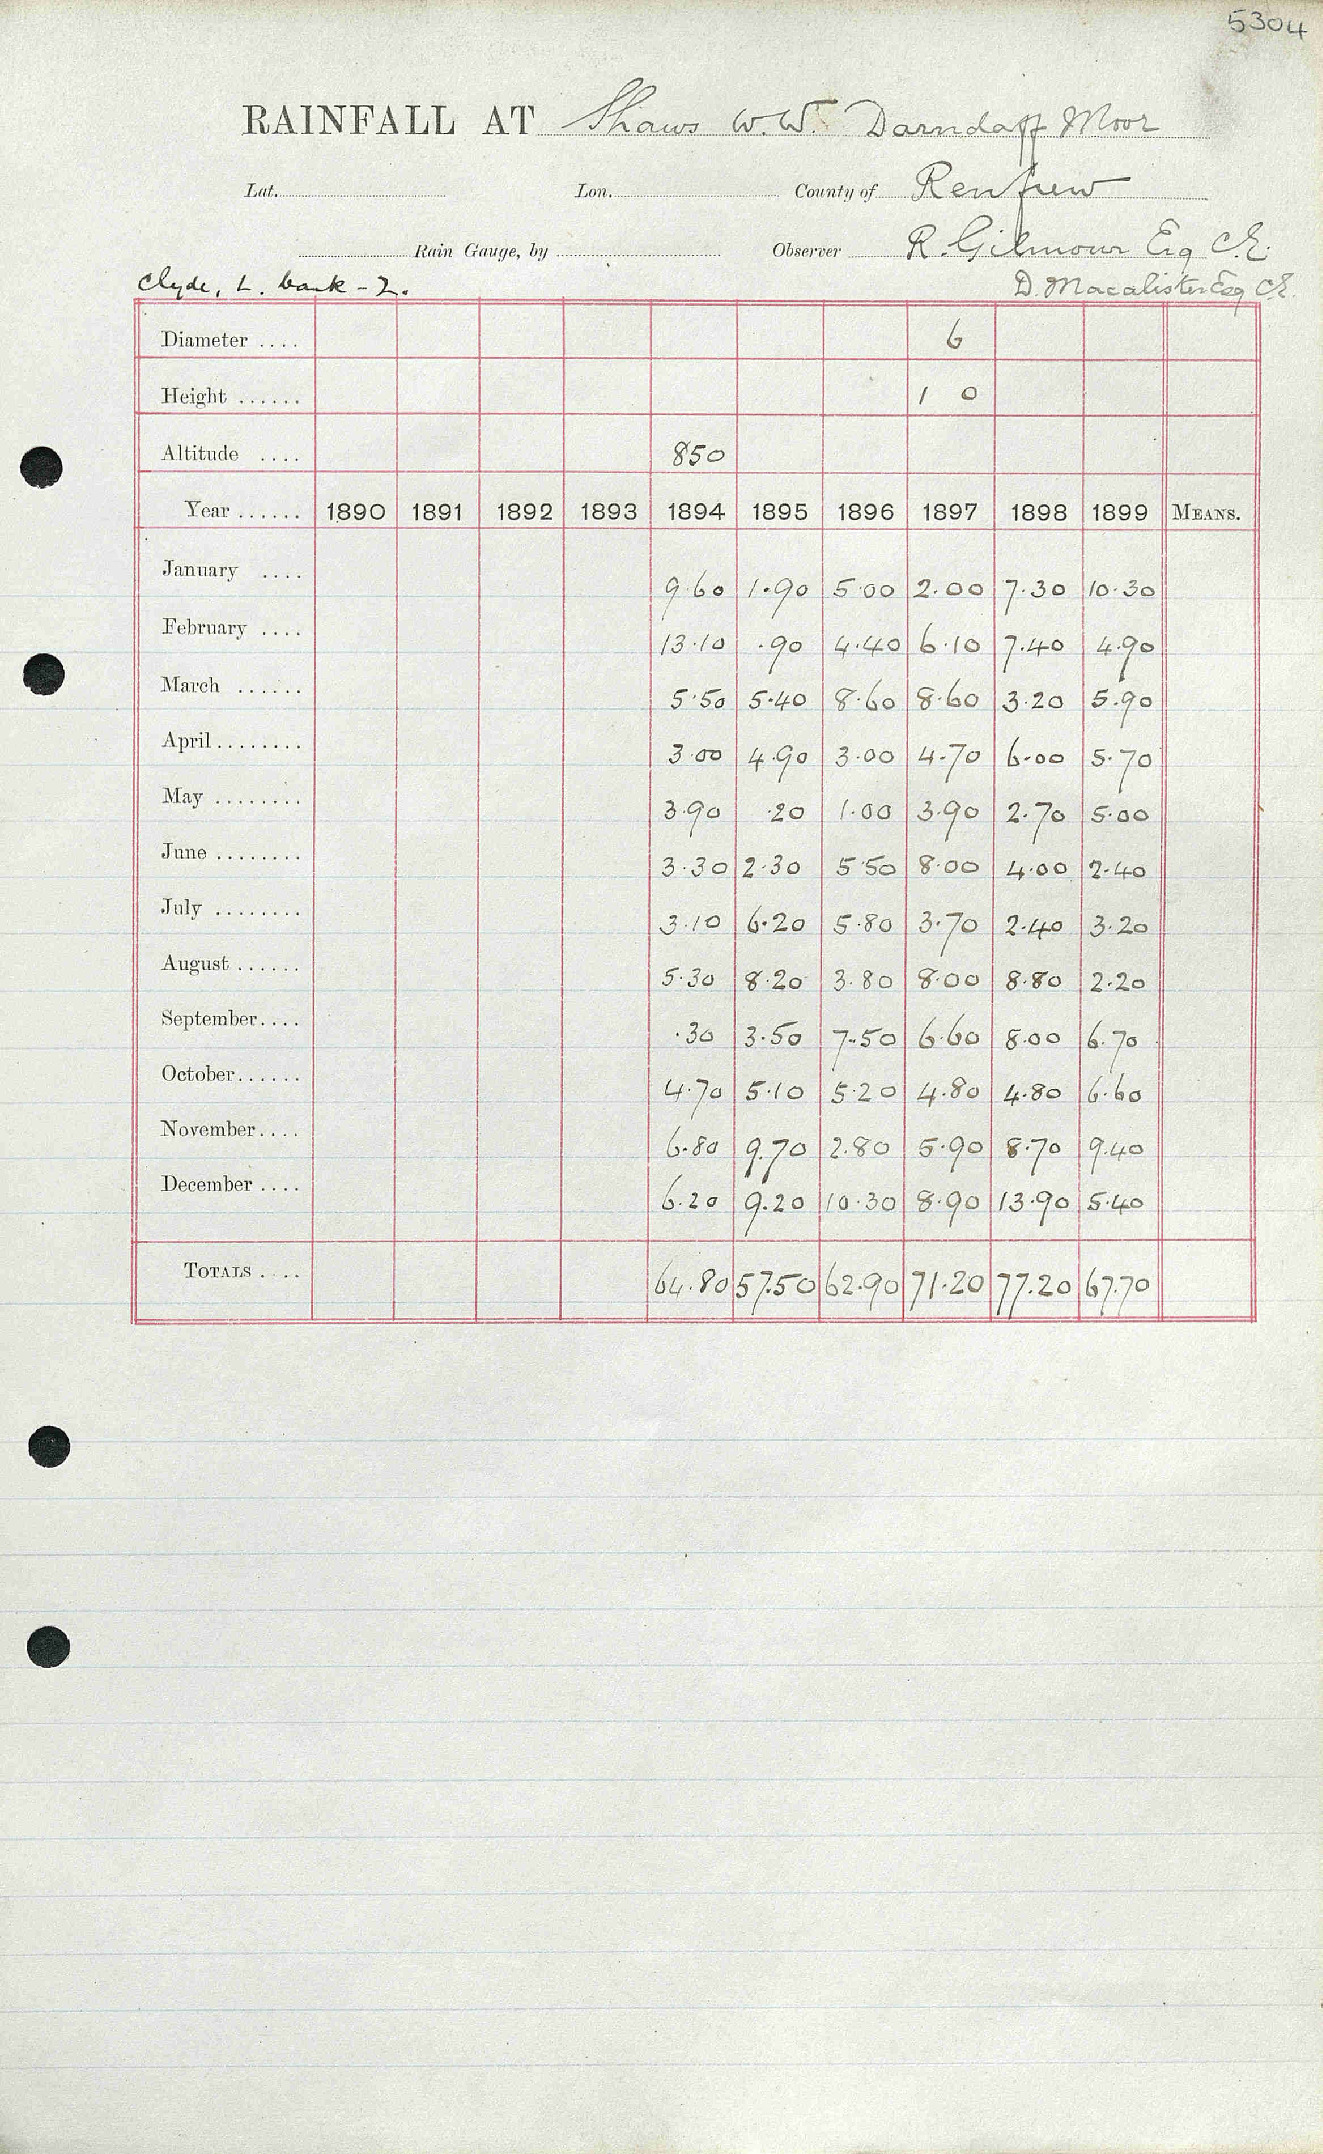 5304
RAINFALL AT Shaws W.W. Darndaff Moor
Lat. Lon. County of Renfrew
Rain Gauge, by Observer R. Gilmour Esq C.E.
Clyde, L. bank - 2. D. Macalister Esq C.E.
Diameter .... 6
Height ...... 1 0
Altitude .... 850
Year ...... 1890 1891 1892 1893 1894 1895 1896 1897 1898 1899 MEANS.
January .... 9.60 1.90 5.00 2.00 7.30 10.30
February .... 13.10 .90 4.40 6.10 7.40 4.90
March ...... 5.50 5.40 8.60 8.60 3.20 5.90
April ........ 3.00 4.90 3.00 4.70 6.00 5.70
May ........ 3.90 .20 1.00 3.90 2.70 5.00
June ........ 3.30 2.30 5.50 8.00 4.00 2.40
July ........ 3.10 6.20 5.80 3.70 2.40 3.20
August ...... 5.30 8.20 3.80 8.00 8.80 2.20
September .... .30 3.50 7.50 6.60 8.00 6.70
October ...... 4.70 5.10 5.20 4.80 4.80 6.60
November .... 6.80 9.70 2.80 5.90 8.70 9.40
December .... 6.20 9.20 10.30 8.90 13.90 5.40
TOTALS .... 64.80 57.50 62.90 71.20 77.20 67.70